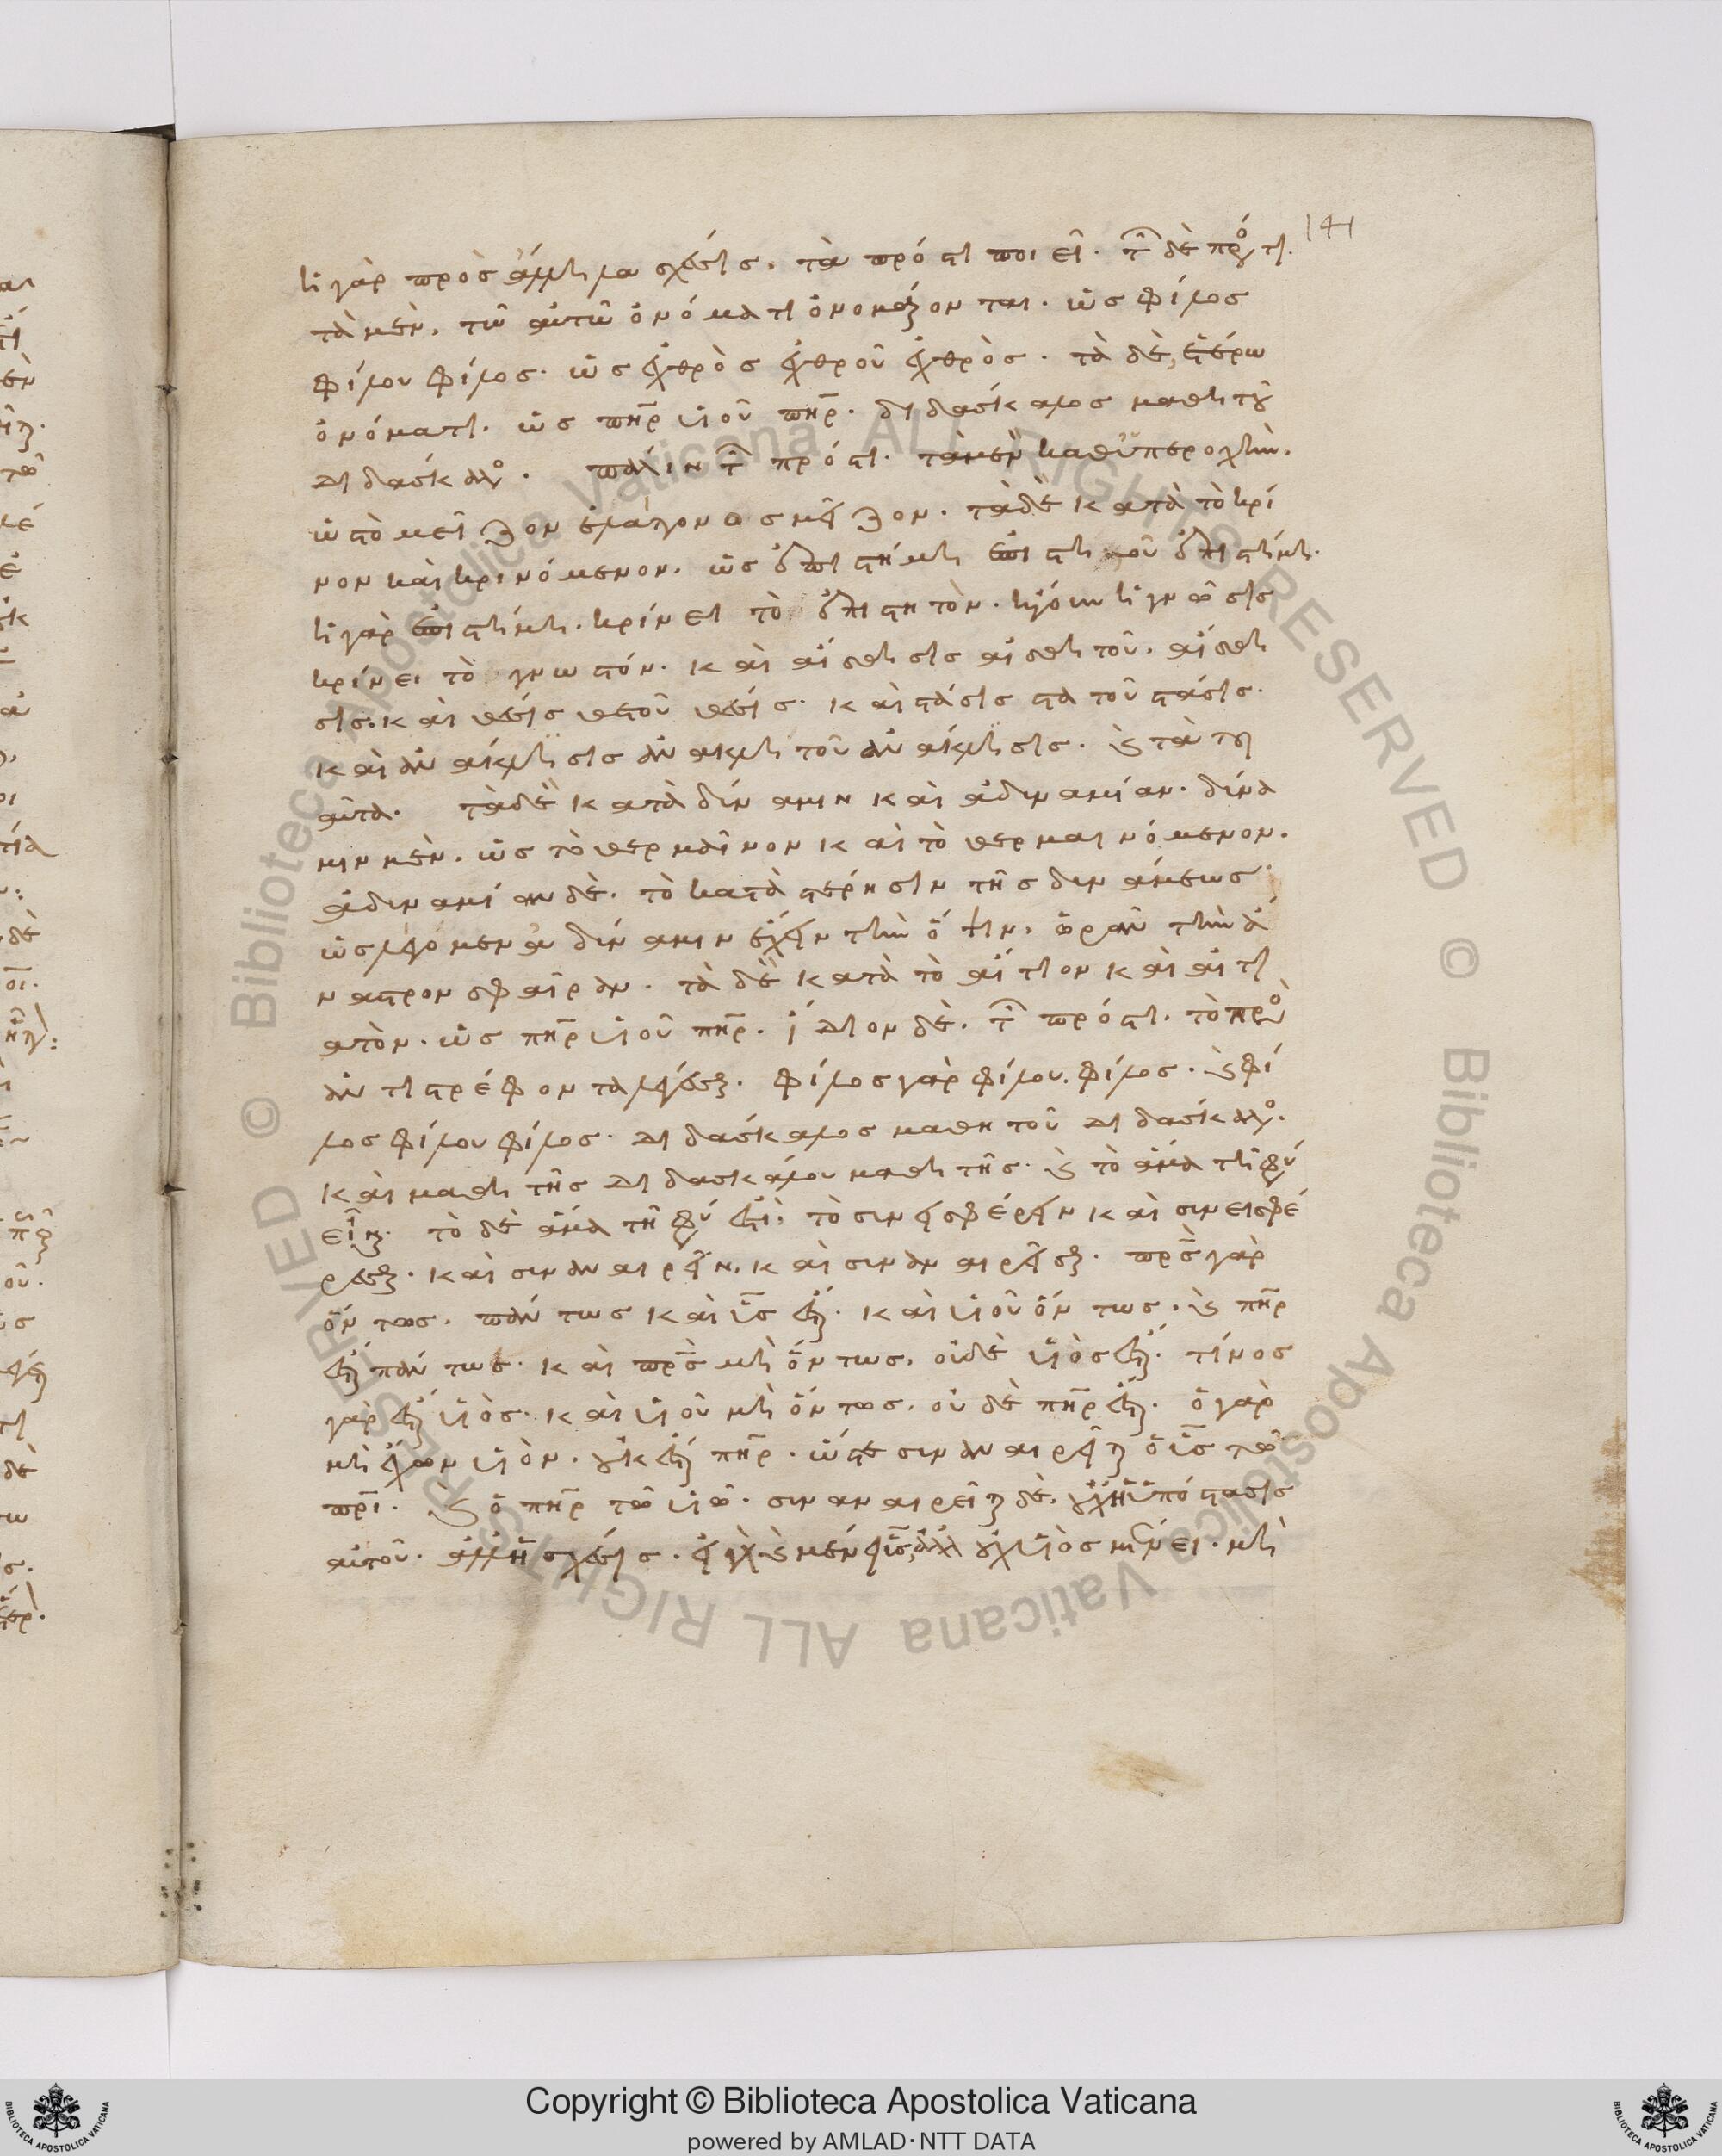 141
ἡ γὰρ πρὸς ἄλληλα σχέσις. τὰ πρός τι ποιεῖ. τῶν δὲ πρός τι.
τὰ μὲν, τῶ αὐτῶ ὀνόματι ὀνομάζονται. ὡς φίλος
φίλου φίλος. ὡς ἐχθρὸς ἐχθροῦ ἐχθρὸς. τὰ δὲ, ἑτέρω
ὀνόματι. ὡς πηρ υἱοῦ πηρ. διδάσκαλος μαθητοῦ
διδάσκαλος. πάλιν τῶν πρός τι. τὰ μὲν καθ' ὑπεροχὴν.
ὡς τὸ μεῖζον ἐλάττονος μεῖζον. τὰ δὲ κατὰ τὸ κρί
νον καὶ κρινόμενον. ὡς ἐπιστήμη ἐπιστητοῦ ἐπιστήμη.
ἡ γὰρ ἐπιστήμη. κρίνει τὸ ἐπιστητὸν. ἤγουν ἡ γνῶσις
κρίνει τὸ γνωστόν. καὶ αἴσθησις αἰσθητοῦ. αἴσθη
σις. καὶ θέσις θετοῦ θέσις. καὶ στάσις στατοῦ στάσις.
καὶ ἀνάκλησις ἀνακλητοῦ ἀνάκλησις. καὶ τὰ τοι
αῦτα. τὰ δὲ κατὰ δύναμιν καὶ ἀδυναμίαν. δύνα
μιν μὲν. ὡς τὸ θερμαῖνον καὶ τὸ θερμαινόμενον.
ἀδυναμίαν δὲ. τὸ κατὰ στέρησιν τῆς δυνάμεως
ὡς λέγομεν ἀδυναμίαν ἔχειν τὴν ὄψιν. ὁρᾶν τὴν ἄ
ναστρον σφαῖραν. τὰ δὲ κατὰ τὸ αἴτιον καὶ αἰτι
ατὸν. ὡς πηρ υἱοῦ πηρ. ἴδιον δὲ. τῶν πρός τι. τὸ πρὸς
ἀντιστρέφοντα λέγεσθαι. φίλος γὰρ φίλου. φίλος. καὶ φί
λος φίλου φίλος. διδάσκαλος μαθητοῦ διδάσκαλος.
καὶ μαθητῆς διδασκάλου μαθητῆς. καὶ τὸ ἅμα τῆ φύσει
εἶναι. τὸ δὲ ἅμα τῆ φύσει ἐστὶ. τὸ συνεισφέρειν καὶ συνεισφέ
ρεσθαι. καὶ συναναιρεῖν. καὶ συναναιρεῖσθαι. πρς γὰρ
ὄντος. πάντως καὶ υς ἔσται. καὶ υἱοῦ ὄντως. καὶ πηρ
ἔσται πάντως. καὶ πρς μὴ ὄντως. οὐδὲ υἱὸς ἔσται. τίνος
γὰρ ἔσται υἱὸς. καὶ υἱοῦ μὴ ὄντος. οὐδὲ πηρ ἔσται. ὁ γὰρ
μὴ ἔχων υἱὸν. οὐκ ἔσται πηρ. ὥστε συναναιρεῖται ὁ υς τῶ
πρι. καὶ ὁ πηρ τῶ υἱῶ. συναναιρεῖται δὲ. οὐχ ἡ ὑπόστασις
αὐτοῦ. ἀλλ' ἡ σχέσις.